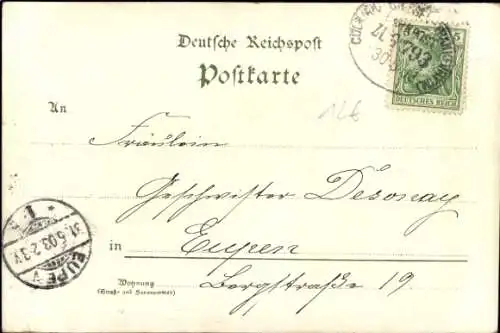 Deutsche Reichspost
Postkarte
5
DEUTSCHES REICH
793
12€
An
Fräulein
Geschwister Desonay
in Eupen
Wohnung
(Straße und Hausnummer)
Bergstraße 19.
EUPEN
31.5.03.2-3V